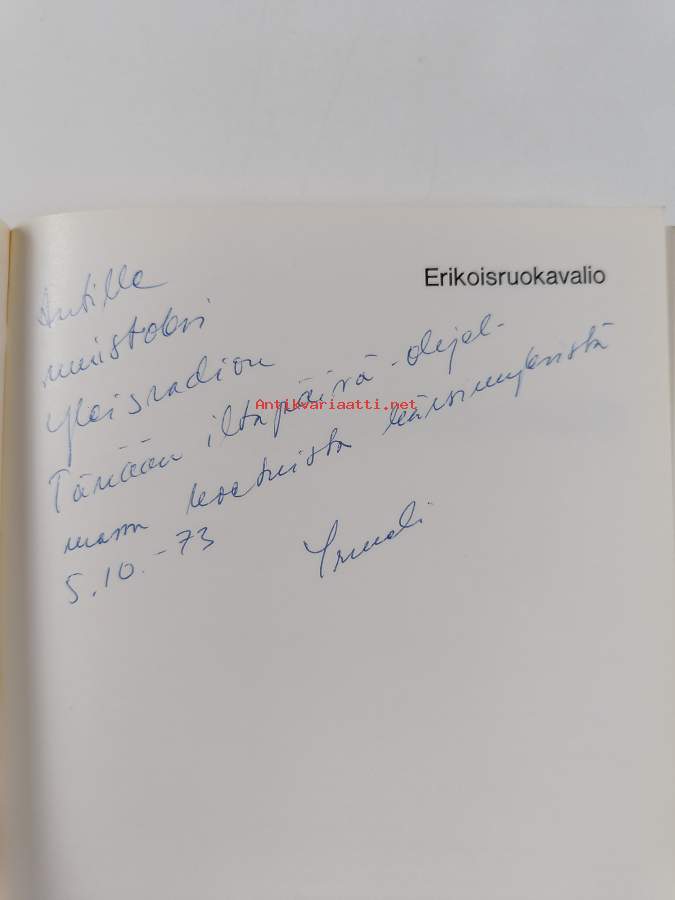 Erikoisruokavalio
Antille
muistoksi
Yleisradion
Tänään iltapäivä-ohjel-
massa koetuista kärsimyksistä
5.10.-73
Antikvariaatti.net